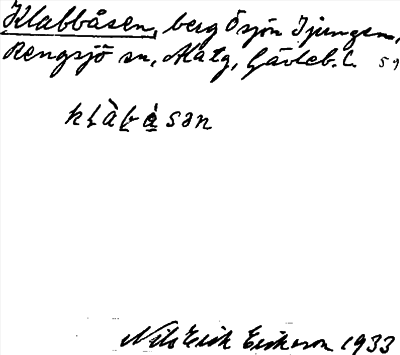 Klabbåsen, berg Ö sjön Tjungen,
Rengsjö sn, Ala tg, Gävleb. l. 59
Nils Erik Eriksson 1933